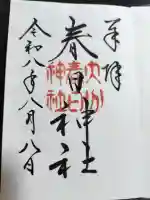 奉拝
春日神社
令和八年八月八日